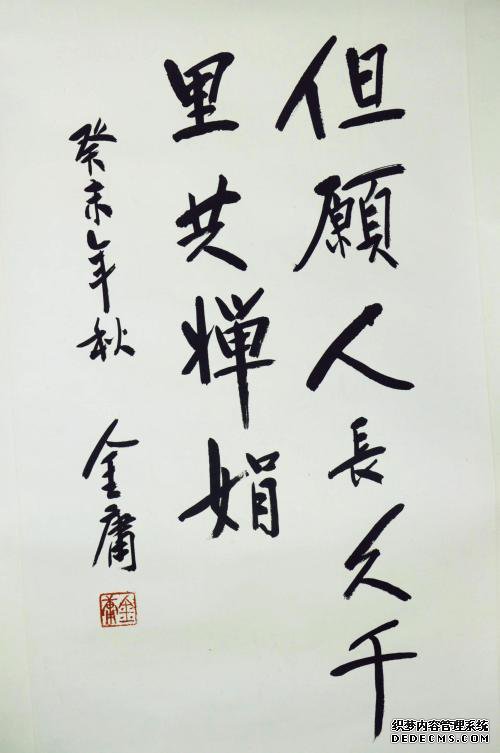 但願人長久千
里共嬋娟
癸未年秋 金庸
金庸
织梦内容管理系统
DEDECMS.COM